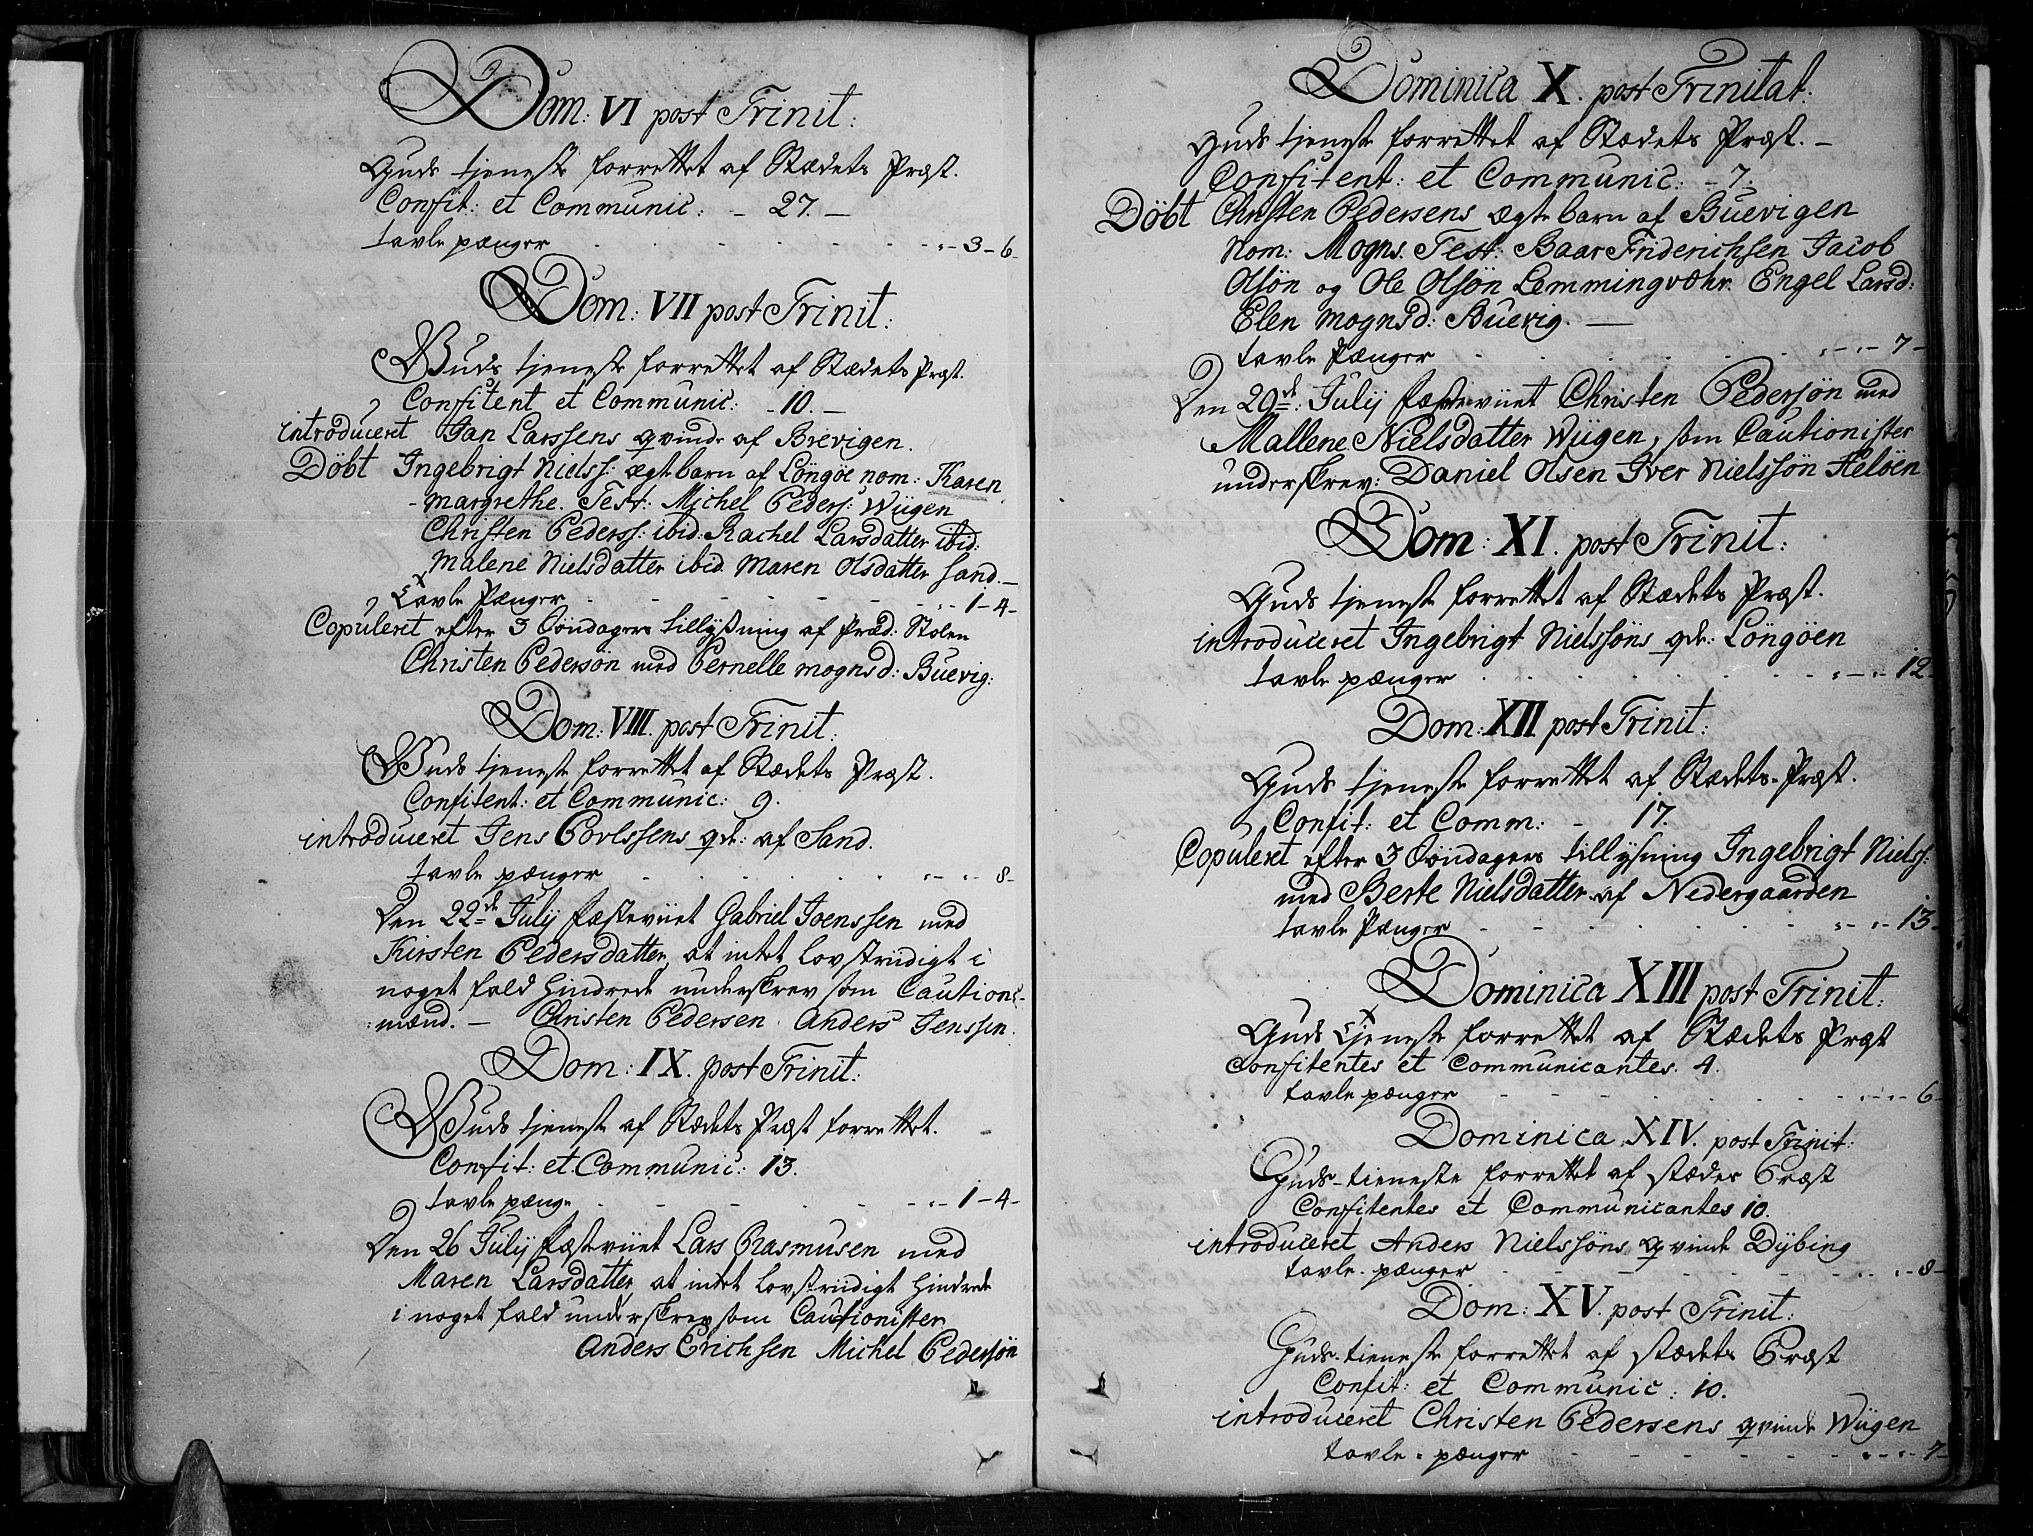 Dom: VI post Trinit:
Guds tjeneste forrettet af Stædets Præst.
Confit: et Communic: - 27. -
tavle pænger - - - 3 - 6
Dom: VII post Trinit:
Guds tjeneste forrettet af Stædets Præst.
Confitent et Communic: - 10. -
introduceret Jan Larssens qvinde af Brevigen.
Döbt Ingebrigt Nielss: ægte barn af Löngöe nom: Karen
margrethe. Test: Michel Peders: Wügen
Christen Pederss: ibid: Rachel Larsdatter ibid:
Malene Nielsdatter ibid. Maren Olsdatter Sand. -
Tavle Pænger - - - 1 - 4 -
Copuleret efter 3 Söndagers tillÿsning af Præd: Stolen
Christen Pedersön med Pernelle mognsd: Buevig:
Dom: VIII. post Trinit:
Guds tjeneste forrettet af Stædets Præst.
Confitent: et Communic: 9.
introduceret Jens Povlssens qde: af Sand.
tavle pænger - - - 8 -
Den 22de Julÿ fæstevüet Gabriel Joenssen med
Kirsten Pedersdatter, at intet Lovstridigt i
noget fald hindrede underskrev som Cautions-
:mænd. - Christen Pedersen Anders Jenssen.
Dom: IX. post Trinit:
Guds tjeneste af Stædets Præst forrettet.
Confit: et Communic: 13.
tavle pænge - - - 1 - 4 -
Den 26 Julÿ fæstevüet Lars Rasmusen med
Maren Larsdatter, at intet Lovstridigt hindrede
i noget fald underskrev som Cautionister
Anders Erichsen Michel Pedersön
Dominica X. post Trinitat:
Guds tjeneste forrettet af Stædets Præst. -
Confitent: et Communic: - 7.
Döbt Christen Pedersens ægte barn af Buevigen
Nom: Mogns. Test: Baar Friderichsen Jacob
Olsön og Ole Olsön Lemmingvæhr Engel Larsd:
Elen mognsd: Buevig. -
tavle Pænger - - - 7 -
Den 29de: Julÿ fæstevüet Christen Pedersön med
Mallene Nielsdatter Wügen, som Cautionister
underskrev: Daniel Olsen Iver Nielssön Helöen
Dom: XI. post Trinit:
Guds tjeneste forrettet af Stædets Præst.
introduceret Ingebrigt Nielssöns qde: Löngöen
tavle pænger - - - 12 -
Dom: XII post Trinit:
Guds tjeneste forrettet af Stædets Præst.
Confit: et Comm: - 17.
Copuleret efter 3 Söndagers tillÿsning Ingebrigt Nielss:
med Berte Nielsdatter af Nedergaarden
tavle Pænger - - - 13 -
Dominica XIII post Trinit:
Guds Tjeneste forrettet af Stædets Præst
Confitentes et Communicantes. 4.
tavle pænger - - - 6 -
Dominica XIV. post Trinit:
Guds-tieneste forrettet af stædes Præst
Confitentes et Communicantes 10.
introduceret Anders Nielssöns qvinde Dÿbing
tavle-pænger - - - 8 -
Dom: XV. post Trinit:
Guds-tieneste forrettet af stædets Præst
Confit: et Communic: 10.
introduceret Christen Pedersens qvinde Wügen
tavle-pænger - - - 7 -